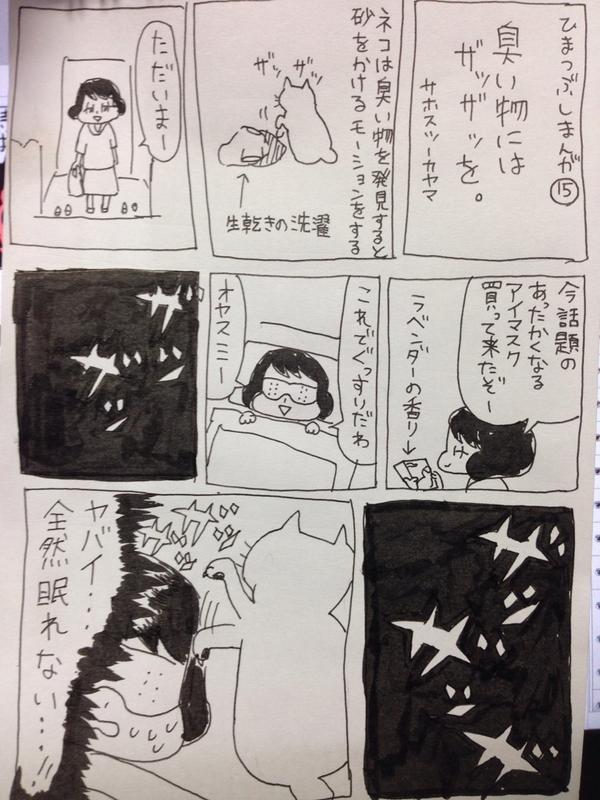 ひまつぶしまんが⑮
臭い物には
ザッザッを。
サホスツーカヤマ
ネコは臭い物を発見すると
砂をかけるモーションをする
ザッ
ザッ
生乾きの洗濯
ただいまー
今話題の
あったかくなる
アイマスク
買って来たぞー
ラベンダーの香り
これでぐっすいだわ
オヤスミー
ザッ
ザッ
ザッ
ザッ
ザッ
ザッ
ザッ
ヤバイ…
全然眠れない…